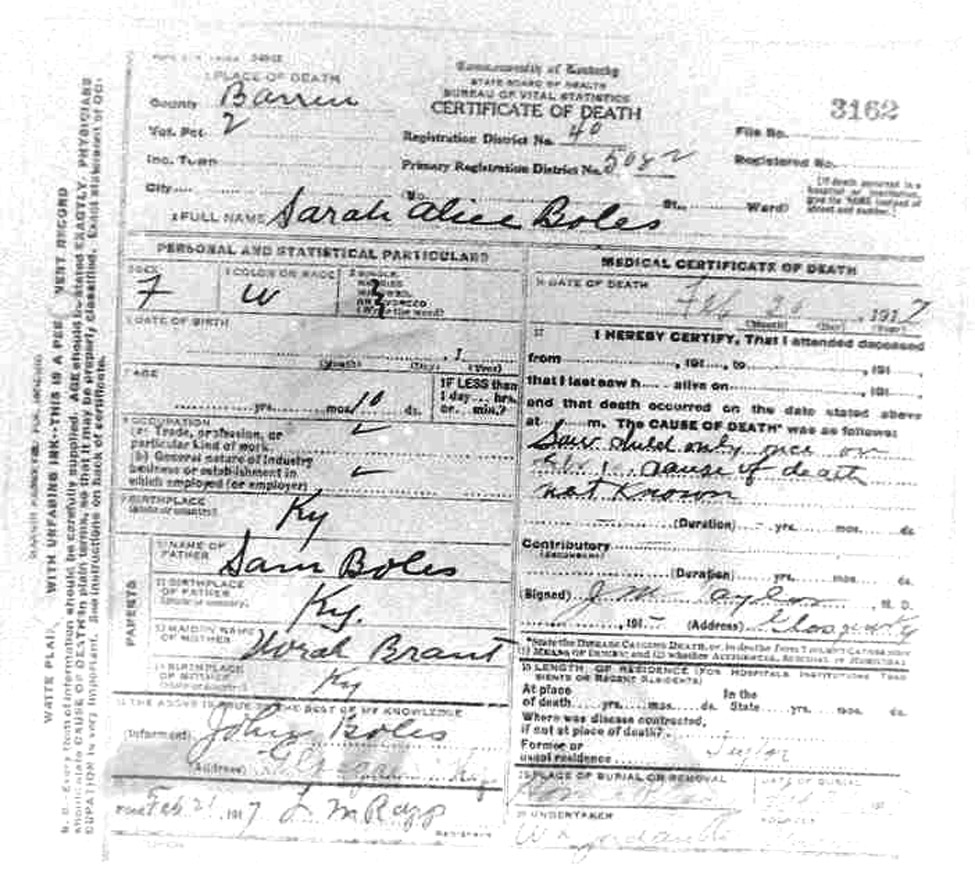 1 PLACE OF DEATH
County Barren
Vot. Pct 2
Inc. Town
City
Commonwealth of Kentucky
STATE BOARD OF HEALTH
BUREAU OF VITAL STATISTICS
CERTIFICATE OF DEATH
Registration District No. 40
Primary Registration District No. 5082
No. St., Ward)
3162
File No.
Registered No.
[If death occurred in a
hospital or institution,
give its NAME instead of
street and number.]
2 FULL NAME Sarah Alice Boles
PERSONAL AND STATISTICAL PARTICULARS
3 SEX
F
4 COLOR OR RACE
W
5 SINGLE
MARRIED
WIDOWED,
OR DIVORCED
(Write the word)
6 DATE OF BIRTH
, 1
(Month) (Day) (Year)
7 AGE
yrs. mos. 10 ds.
IF LESS than
1 day... hrs.
or... min.?
8 OCCUPATION
(a) Trade, profession, or
particular kind of work
(b) General nature of industry
business or establishment in
which employed (or employer)
9 BIRTHPLACE
(State or country)
Ky
PARENTS
10 NAME OF
FATHER
Sam Boles
11 BIRTHPLACE
OF FATHER
(State or country)
Ky.
12 MAIDEN NAME
OF MOTHER
Brant
13 BIRTHPLACE
OF MOTHER
(State or country)
Ky
14 THE ABOVE IS TRUE TO THE BEST OF MY KNOWLEDGE
(Informant) John Boles
(Address)
Feb 21, 1917
REGISTRAR
MEDICAL CERTIFICATE OF DEATH
16 DATE OF DEATH
Feb 20, 1917
(Month) (Day) (Year)
17 I HEREBY CERTIFY, That I attended deceased
from , 191 , to , 191
that I last saw h alive on , 191
and that death occurred on the date stated above
at m. The CAUSE OF DEATH* was as follows:
Saw child only once on
cause of death
not Known
(Duration) yrs. mos. ds.
Contributory
(SECONDARY)
(Duration) yrs. mos. ds.
(Signed) J M Taylor, M. D.
, 191 (Address) Glasgow Ky
*State the DISEASE CAUSING DEATH, or, in deaths from VIOLENT CAUSES state
(1) MEANS OF INJURY; and (2) whether ACCIDENTAL, SUICIDAL or HOMICIDAL
18 LENGTH OF RESIDENCE (FOR HOSPITALS, INSTITUTIONS, TRAN-
SIENTS OR RECENT RESIDENTS)
At place In the
of death yrs. mos. ds. State yrs. mos. ds.
Where was disease contracted,
if not at place of death?
Former or
usual residence
19 PLACE OF BURIAL OR REMOVAL
DATE OF BURIAL
20 UNDERTAKER
WRITE PLAINLY WITH UNFADING INK--THIS IS A PERMANENT RECORD
N. B. Every item of information should be carefully supplied. AGE should be stated EXACTLY. PHYSICIANS
should state CAUSE OF DEATH in plain terms, so that it may be properly classified. Exact statement of OC-
CUPATION is very important. See instructions on back of certificate.